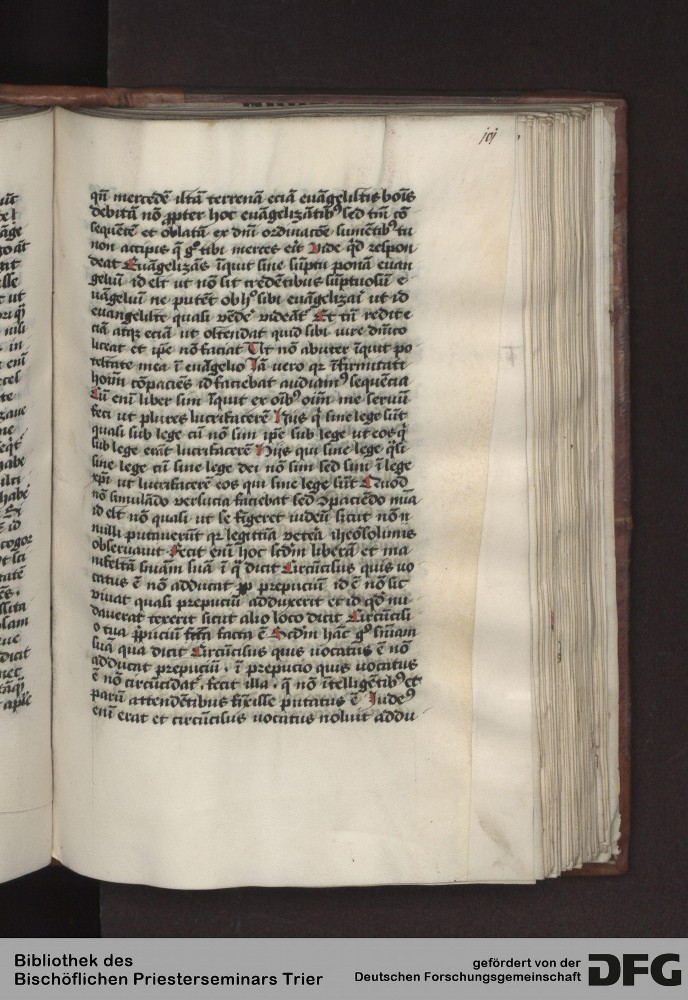 qñ mercedē istā terrenā eciā euāgelistis bois
debitā nō ꝓpter hoc euāgelizātibꝰ sed tm̄ cō
sequētē et oblatā ex dn̄i ordinacōe sumētibꝰ tu
non accipis q̄ gͦ tibi merces erit Uide qd̄ respon
deat Euāgelizās īquit sine sūptu ponā euan
geliū id est ut nō sit credētibus sūptuosū e
uāgeliū ne putēt ob hͦ sibi euāgelizari ut id
euangeliste quasi vēdeͤ videāt Et tn̄ redit e
ciā atqꝫ eciā ut ostendat quid sibi iure dn̄ico
liceat et ip̄e nō faciat Ut nō abutar īquit po
testate mea ī euāgelio Iā vero qꝛ īfirmitati
hoīm cōpaciēs id faciebat audiamꝰ sequēcia
Cū eni͂ liber sim īquit ex oībꝰ oīm me seruū
feci ut plures lucrifacerē Hijs q̄ sine lege sūt
quasi sub lege cū nō sim ip̄e sub lege ut eos q̄
sub lege erāt lucrifacerē Hijs qui sine lege q̄si
sine lege cū sine lege dei nō sim sed sim ī lege
xp̄i ut lucrifacerē eos qui sine lege sūt Quod
nō simulādo versucia faciebat sed ↄpaciēdo mīa
id est nō quasi ut se fīgeret iudeū sicut nōn
nulli putauerūt qꝛ legittīa vetēa iherosolimis
obseruauit Fecit eni͂ hoc sc̄dm liberā et ma
nifestā snīam suā ī q̄ dicit Circūcisus quis uo
catus ē nō adducat prepuciū id ē nō sic
viuat quasi prepuciū adduxerit et id qd̄ nu
dauerat texerit sicut alio loco dicit Circūcisi
o tua p̄puciū facta ē Sc̄dm hāc gͦ snīam
suā qua dicit Circūcisus quis uocatus ē nō
adducat prepuciū . ī prepucio quis uocatus
ē nō circūcidatꝛ . fecit illa . q̄ nō ītelligētibꝰ et
parū attendētibus fīxisse putatus ē Iudeꝰ
eni͂ erat et circūcisus uocatus noluit addu
Bibliothek des
Bischöflichen Priesterseminars Trier
gefördert von der
Deutschen Forschungsgemeinschaft
DFG